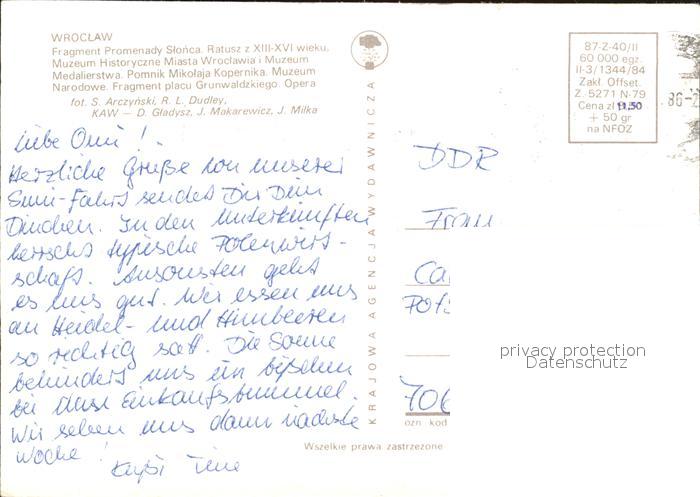 WROCŁAW
Fragment Promenady Słońca. Ratusz z XIII-XVI wieku.
Muzeum Historyczne Miasta Wrocławia i Muzeum
Medalierstwa. Pomnik Mikołaja Kopernika. Muzeum
Narodowe. Fragment placu Grunwaldzkiego. Opera
fot. S. Arczyński, R. L. Dudley,
KAW — D. Gładysz, J. Makarewicz, J. Milka
Liebe Omi!
Herzliche Grüße von unserer
sendet Dir Dein
Dinchen. In den Unterkünften
herrscht typische Polenwirt-
schaft. Ansonsten geht
es uns gut. Wir essen uns
an Heidel- und Himbeeren
so richtig satt. Die Sonne
behindert uns ein bißchen
bei dem Einkaufsbummel.
Wir sehen uns dann nächste
Woche!
KRAJOWA AGENCJA WYDAWNICZA
87-Z-40/II
60 000 egz.
II-3/1344/84
Zakł. Offset.
Z. 5271 N-79
Cena zł 11,50
+ 50 gr
na NFOZ
86-
DDR
Frau
Ca
Pots
706
ozn kod
Wszelkie prawa zastrzeżone
privacy protection
Datenschutz